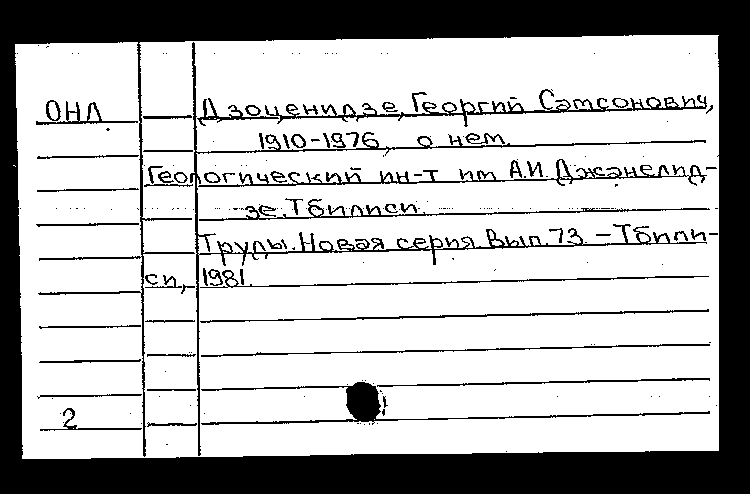 ОНЛ. Дзоценидзе, Георгий Самсонович,
1910-1976, о нем.
Геологический ин-т им А.И. Джанелид-
зе. Тбилиси.
Труды. Новая серия. Вып. 73. – Тбили-
си, 1981.
2